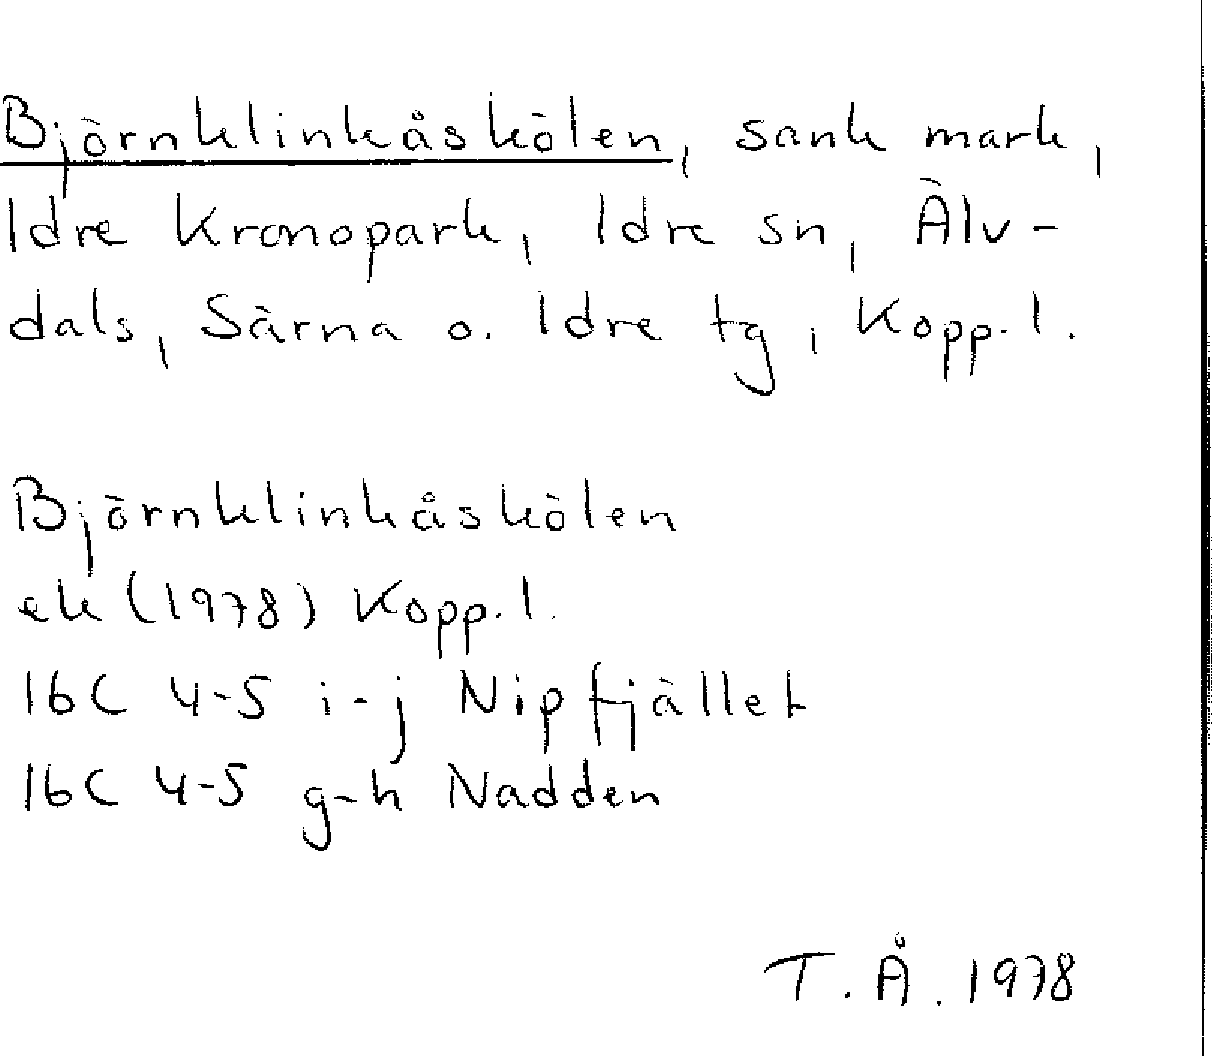 Björnklinkåskölen, sank mark,
Idre Kronopark, Idre sn, Älv-
dals, Särna o. Idre tg, Kopp.l.
Björnklinkåskölen
ek (1978) Kopp.l.
16C 4-5 i-j Nipfjället
16C 4-5 g-h Nadden
T.Å. 1978